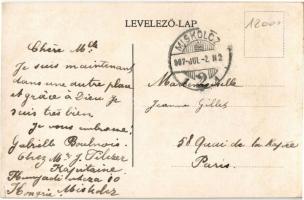 LEVELEZŐ-LAP
12000
MISKOLCZ
907-JUL-2. N2
2
Chère Mlle
Je suis maintenant
dans une autre place
et grâce à Dieu je
suis très bien
Je vous embrasse
Gabrielle
Chez Mr J.
Kapitaine
80
Hongrie Miskolcz
Mademoiselle
Jeanne Gilles
58 Quai de la Rapée
Paris.